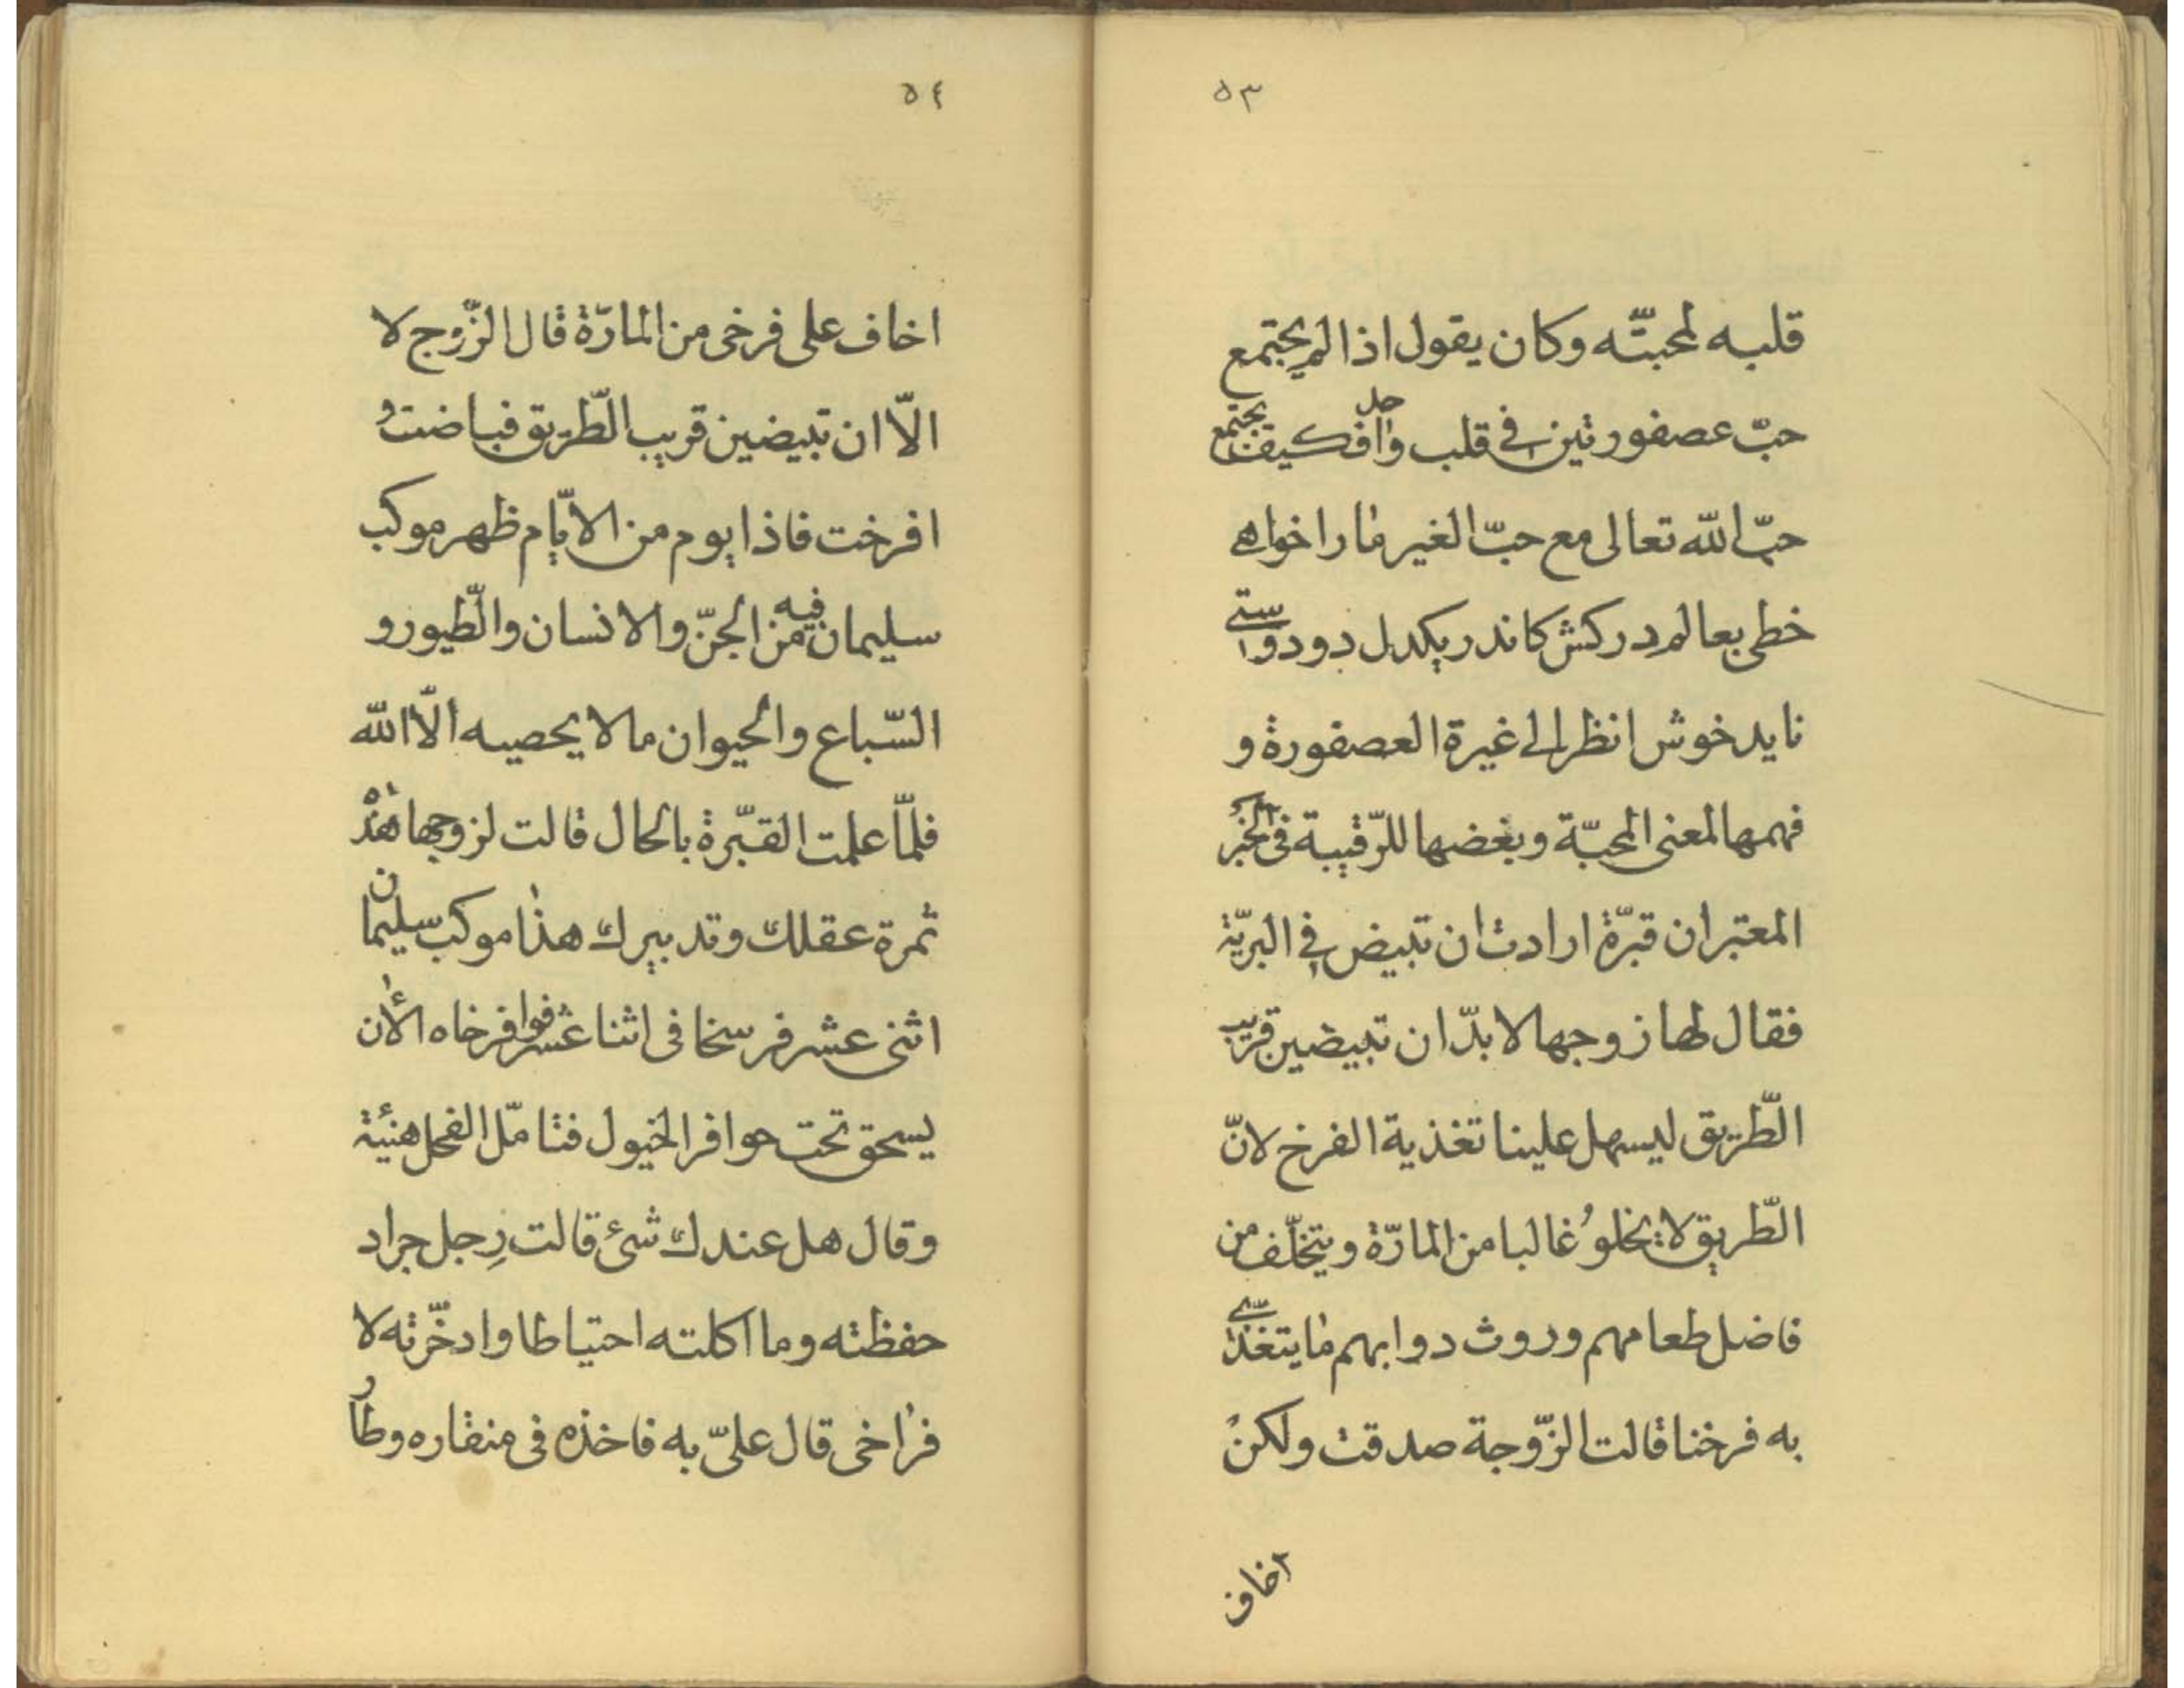 ٥٣
قلبه لمحبتّه وكان يقول اذا لم يجتمع
حبّ عصفورتين في قلب واحد فكيف يجتمع
حبّ الله تعالى مع حبّ الغير ما را خواهى
خطى بعالم دركش كاندر يكدل دو دوستى
نايد خوش انظر الى غيرة العصفورة و
فهمها لمعنى المحبّة وبغضها للرّقيبة فى الخبر
المعتبر ان قبّرة ارادت ان تبيض في البريّة
فقال لها زوجها لا بدّ ان تبيضين قريب
الطّريق ليسهل علينا تغذية الفرخ لانّ
الطّريق لا يخلو غالبا من المارّة ويتخلّف من
فاضل طعامهم وروث دوابهم ما يتغذّى
به فرخنا قالت الزّوجة صدقت ولكن
اخاف
٥٤
اخاف على فرخى من المارّة قال الزّوج لا
الّا ان تبيضين قريب الطّريق فباضت و
افرخت فاذا يوم من الايّام ظهر موكب
سليمان فيه من الجنّ والانسان والطّيور و
السّباع والحيوان ما لا يحصيه الّا الله
فلمّا علمت القبّرة بالحال قالت لزوجها هذه
ثمرة عقلك وتدبيرك هذا موكب سليمان
اثنى عشر فرسخا فى اثنا عشر فوا فرخاه الأن
يسحق تحت حوافر الخيول فتامّل الفحل هنيئة
وقال هل عندك شئ قالت رِجل جراد
حفظته وما اكلته احتياطا وادخّرته لا
فراخى قال علىّ به فاخذه فى منقاره وطار